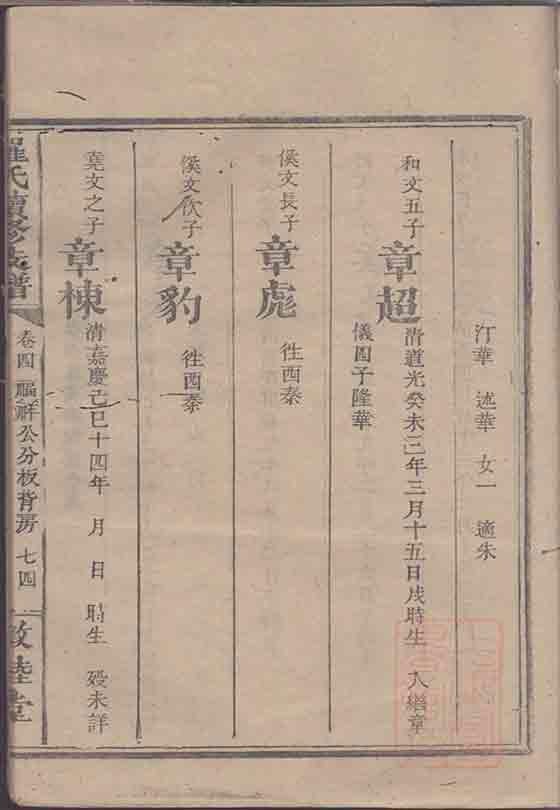 汀華 述華 女一 適朱
和文五子 章超 清道光癸未三年三月十五日戌時生 入繼章
儀四子隆華
侯文長子 章彪 徃西秦
侯文次子 章豹 徃西秦
堯文之子 章棟 清嘉慶己巳十四年 月 日 時生 殁未詳
羅氏續修族譜 卷四 福祥公分板背房 七四 敦睦堂